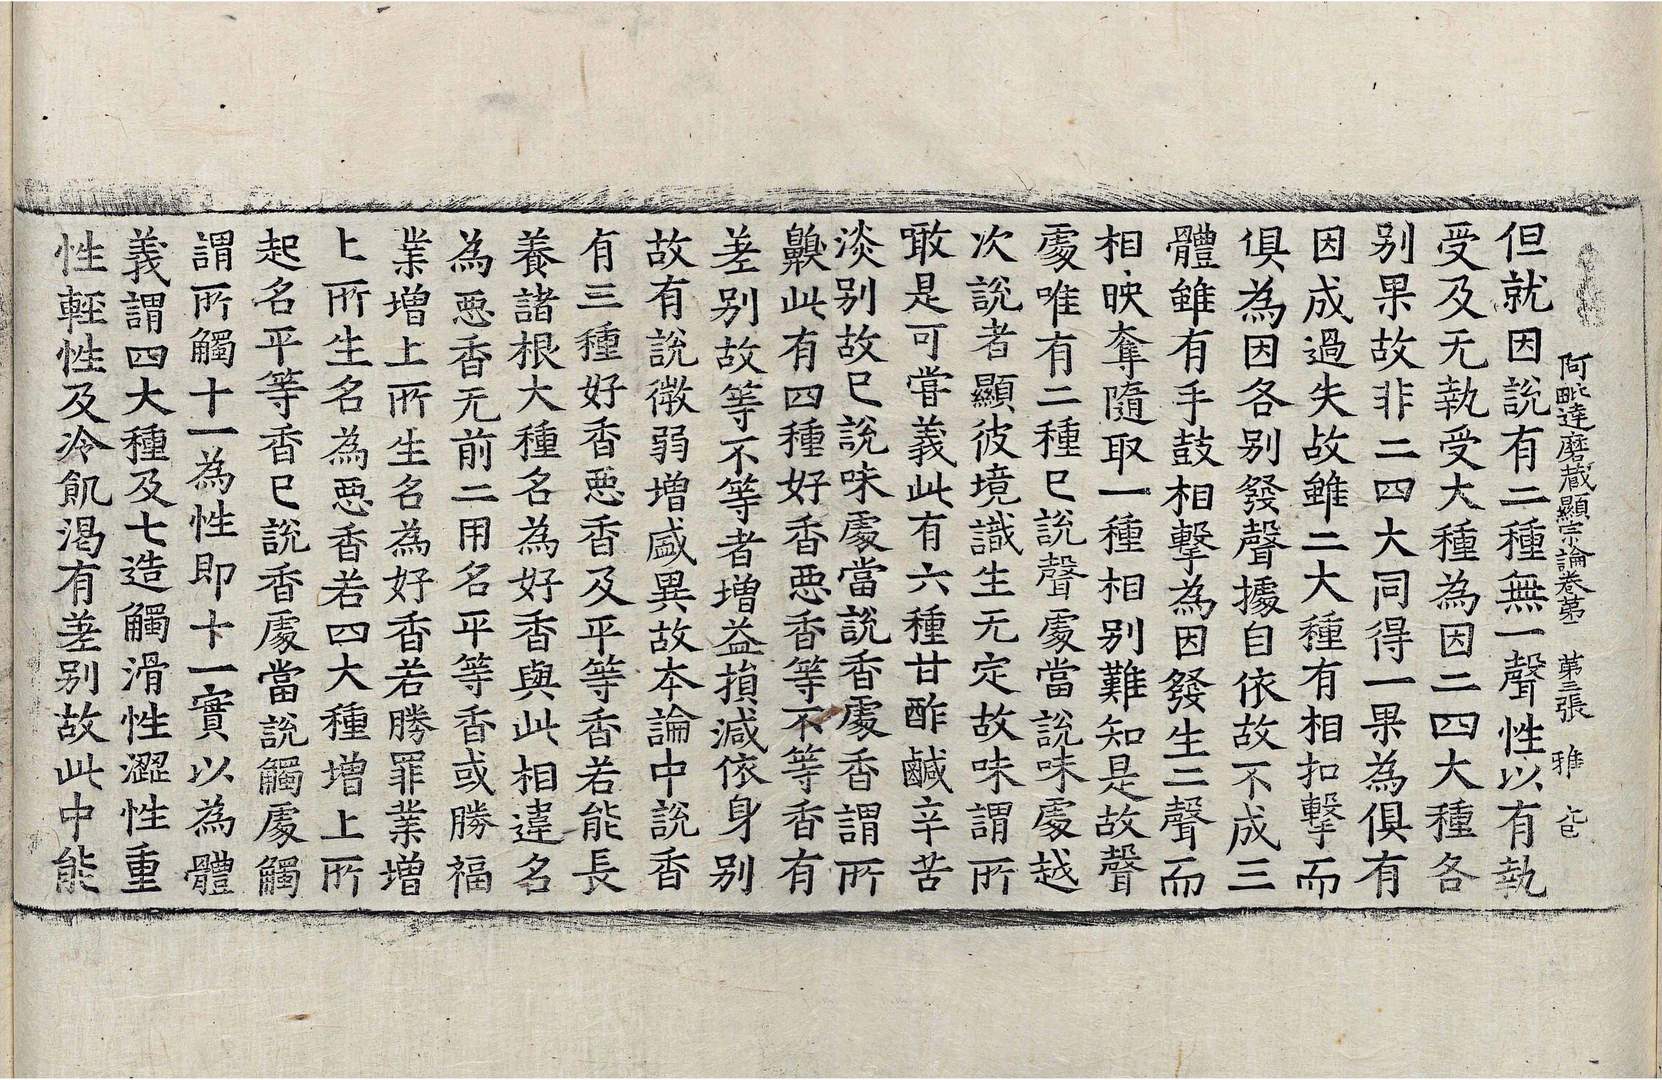 阿毗達磨藏顯宗論卷苐二　苐三張　雅
但就因說有二種無一聲性以有執
受及无執受大種為因二四大種各
别果故非二四大同得一果為俱有
因成過失故雖二大種有相扣擊而
俱為因各别發聲據自依故不成三
體雖有手鼓相擊為因發生二聲而
相映奪隨取一種相别難知是故聲
處唯有二種已說聲處當說味處越
次說者顯彼境識生无定故味謂所
噉是可甞義此有六種甘酢鹹辛苦
淡别故已說味處當說香處香謂所
齅此有四種好香惡香等不等香有
差别故等不等者增益損減依身别
故有說微弱增盛異故本論中說香
有三種好香惡香及平等香若能長
養諸根大種名為好香與此相違名
為惡香无前二用名平等香或勝福
業增上所生名為好香若勝罪業增
上所生名為惡香若四大種增上所
起名平等香已說香處當說觸處觸
謂所觸十一為性即十一實以為體
義謂四大種及七造觸滑性澀性重
性輕性及冷飢渴有差别故此中能